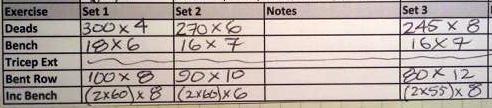 Exercise Set 1 Set 2 Notes Set 3
Deads 300 x 4 270 x 6 245 x 8
Bench 18 x 6 16 x 7 16 x 7
Tricep Ext
Bent Row 100 x 8 90 x 10 80 x 12
Inc Bench (2x60) x 8 (2x60) x 6 (2x55) x 8